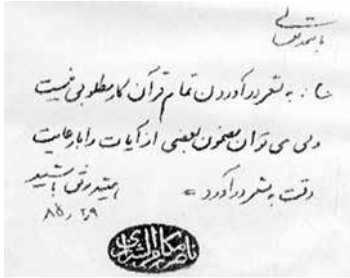 باسمه تعالی
ج: به شعر در آوردن تمام قرآن کار مطلوبی نیست
ولی می توان مضمون بعضی از آیات را با رعایت
دقت به شعر در آورد.
همیشه موفق باشید
۸۵/۲/۹
ناصر مکارم الشیرازی